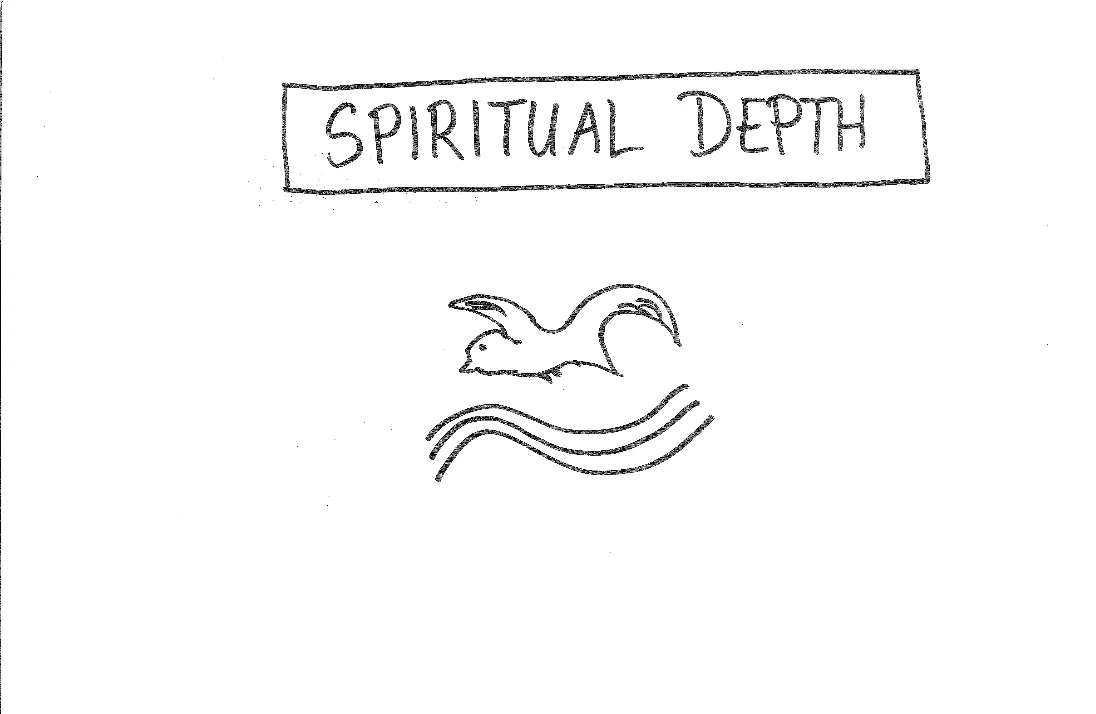 SPIRITUAL DEPTH